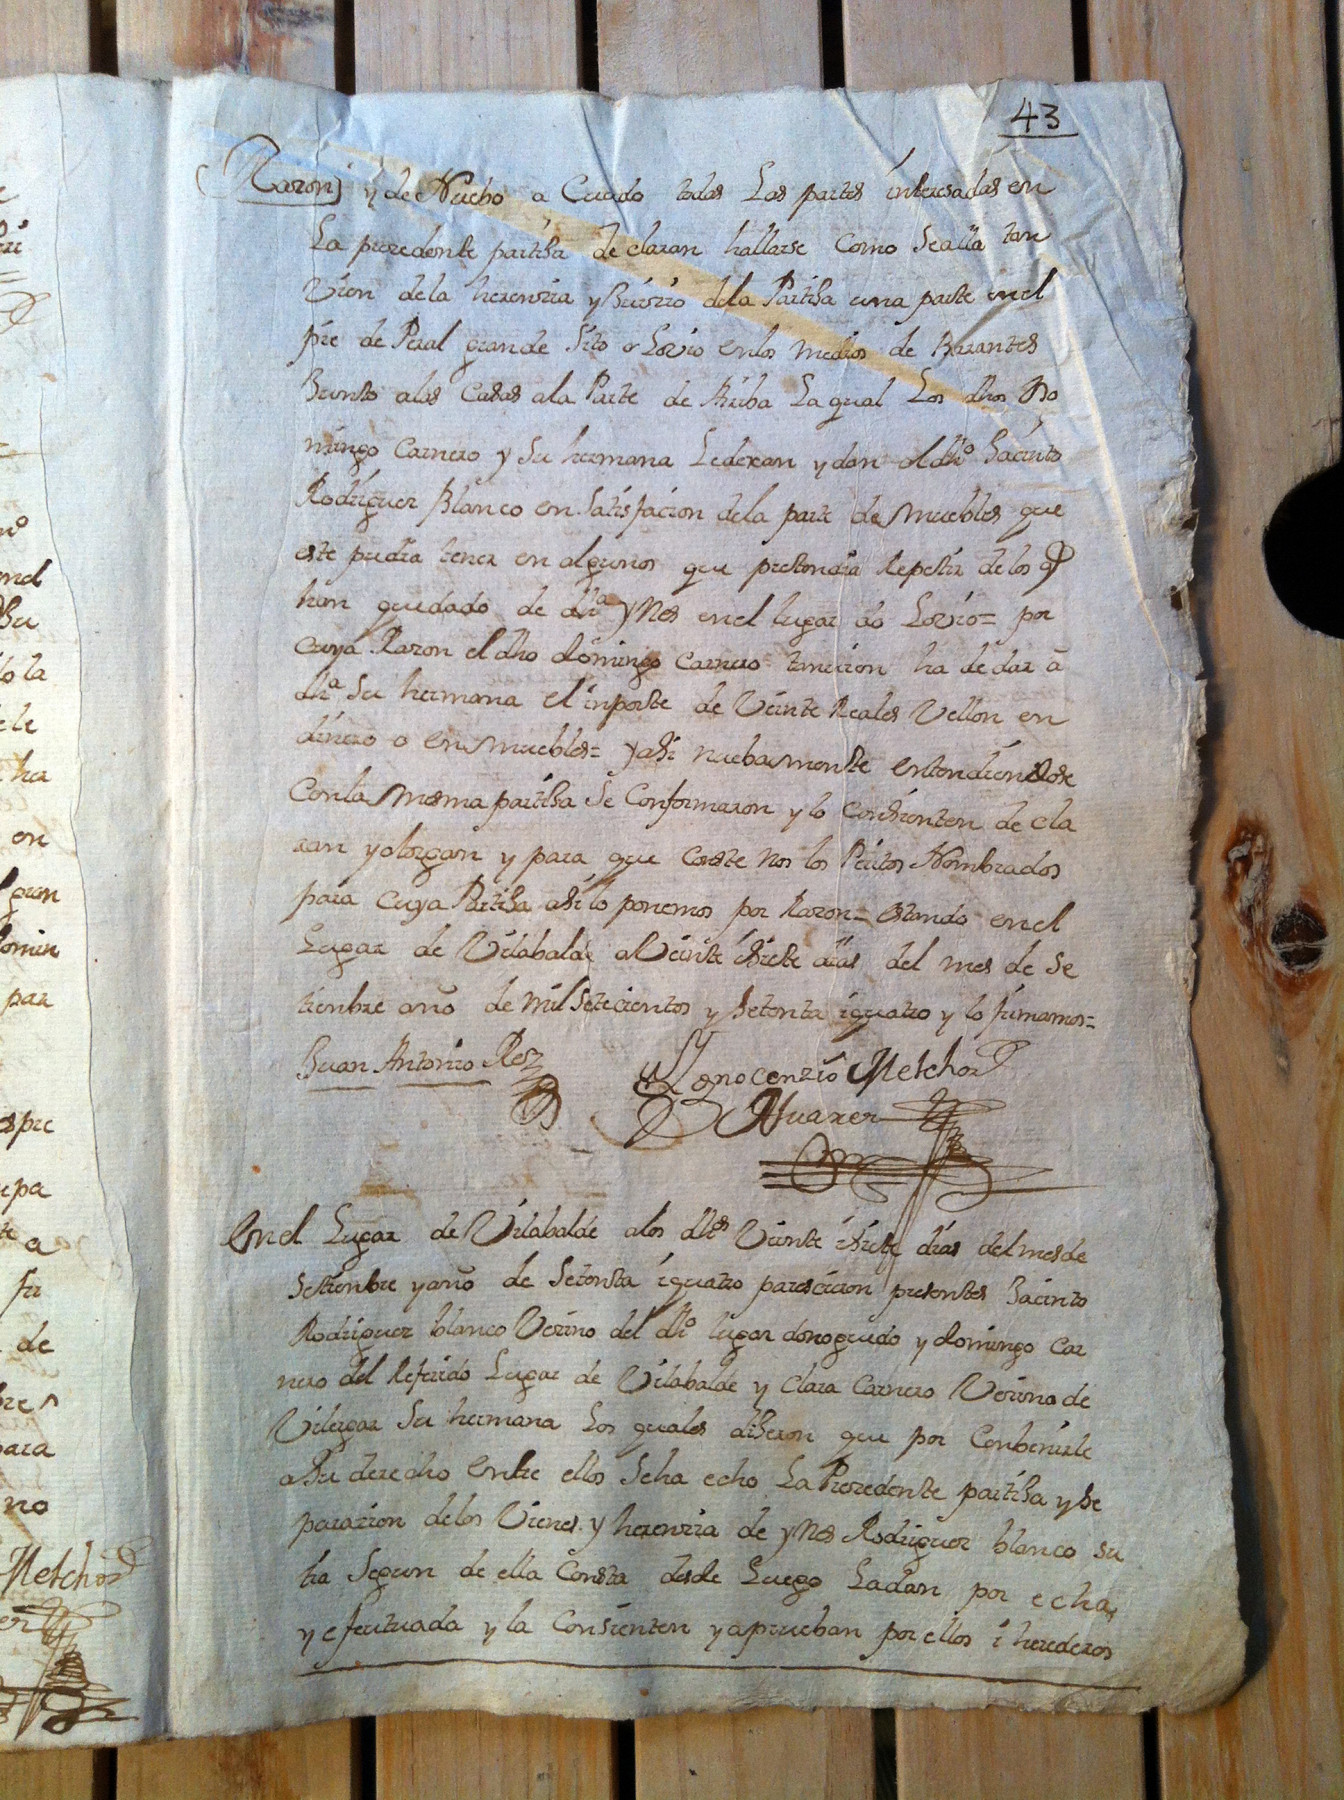 43
Razon y de Nuebo a Cuerdo todas Las partes interesadas en
La prezedente partiha declaran hallarse Como Sealla tan
Vien dela herenzia y Buizio dela Partiha una parte en el
pie de Peral grande Sito o Lovio en los medios de Barantes
Bunto alas Casas ala Parte de Ariba La qual Los dhos Do
mingo Carnero y Su hermana Ledexan y dan al dho Jacinto
Rodriguez Blanco en Satisfacion dela parte de Muebles que
este pudia tener en algunos que pretendia Repetir delos q
han quedado de dha Ynes en el lugar do Lovio= por
Cuya Razon el dho domingo Carnero tanvien ha de dar a
dha Su hermana el inporte de Veinte Reales Vellon en
dinero o en Muebles= y ahi nuebamente entendiendose
Con la Mesma partiha Se Conformaron y lo Consienten de cla
ran y otorgan y para que Conste Nos los Peritos Nombrados
para Cuya Partiha ahi lo ponemos por Razon= Estando en el
Lugar de Vilabalde a Veinte isiete dias del mes de Se
tienbre año de Mil Setecientos y Setenta iquatro y lo firmamos=
Buan Antonio Roz Ygnocenzio Melchor
Alvarez
En el Lugar de Vilabalde a los dhos Veinte isiete dias del mes de
Setienbre y año de Setenta iquatro parescieron presentes Bacinto
Rodriguez blanco Vezino del dho lugar donoguido y domingo Car
nero del Referido Lugar de Vilabalde y Clara Carnero Vezina de
Vilergar Su hermana Los quales diheron que por Conbenirle
a Su derecho entre ellos Seha echo La Prezedente partiha y Se
parazion delos Vienes y herenzia de Ynes Rodriguez blanco su
tia Segun de ella Consta desde Luego Ladan por echa
y efeutuada y la Consienten y aprueban por ellos i herederos